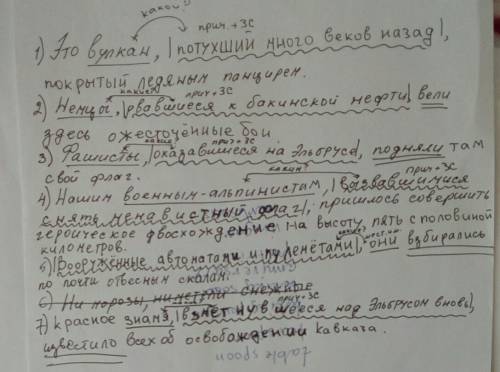 какой?
прич.+ЗС
1) Это вулкан, |потухший много веков назад|,
покрытый ледяным панцирем.
какие? прич+ЗС
2) Немцы, |рвавшиеся к бакинской нефти| вели
здесь ожесточённые бои
какие прич+ЗС
3) Фашисты, |оказавшиеся на Эльбрусе|, подняли там
свой флаг.
каким? прич+ЗС
4) Нашим военным-альпинистам, |вызвавшимися
снять ненавистный флаг|, пришлось совершить
героическое восхождение на высоту пять с половиной
километров.
5) |Вооружённые автоматами и пулемётами|, они взбирались
по почти отвесным скалам.
6) Ни морозы, ни метели снежные
прич+ЗС
7) красное знамя, |взметнувшееся над Эльбрусом вновь|,
известило всех об освобождении Кавказа.
table spoon